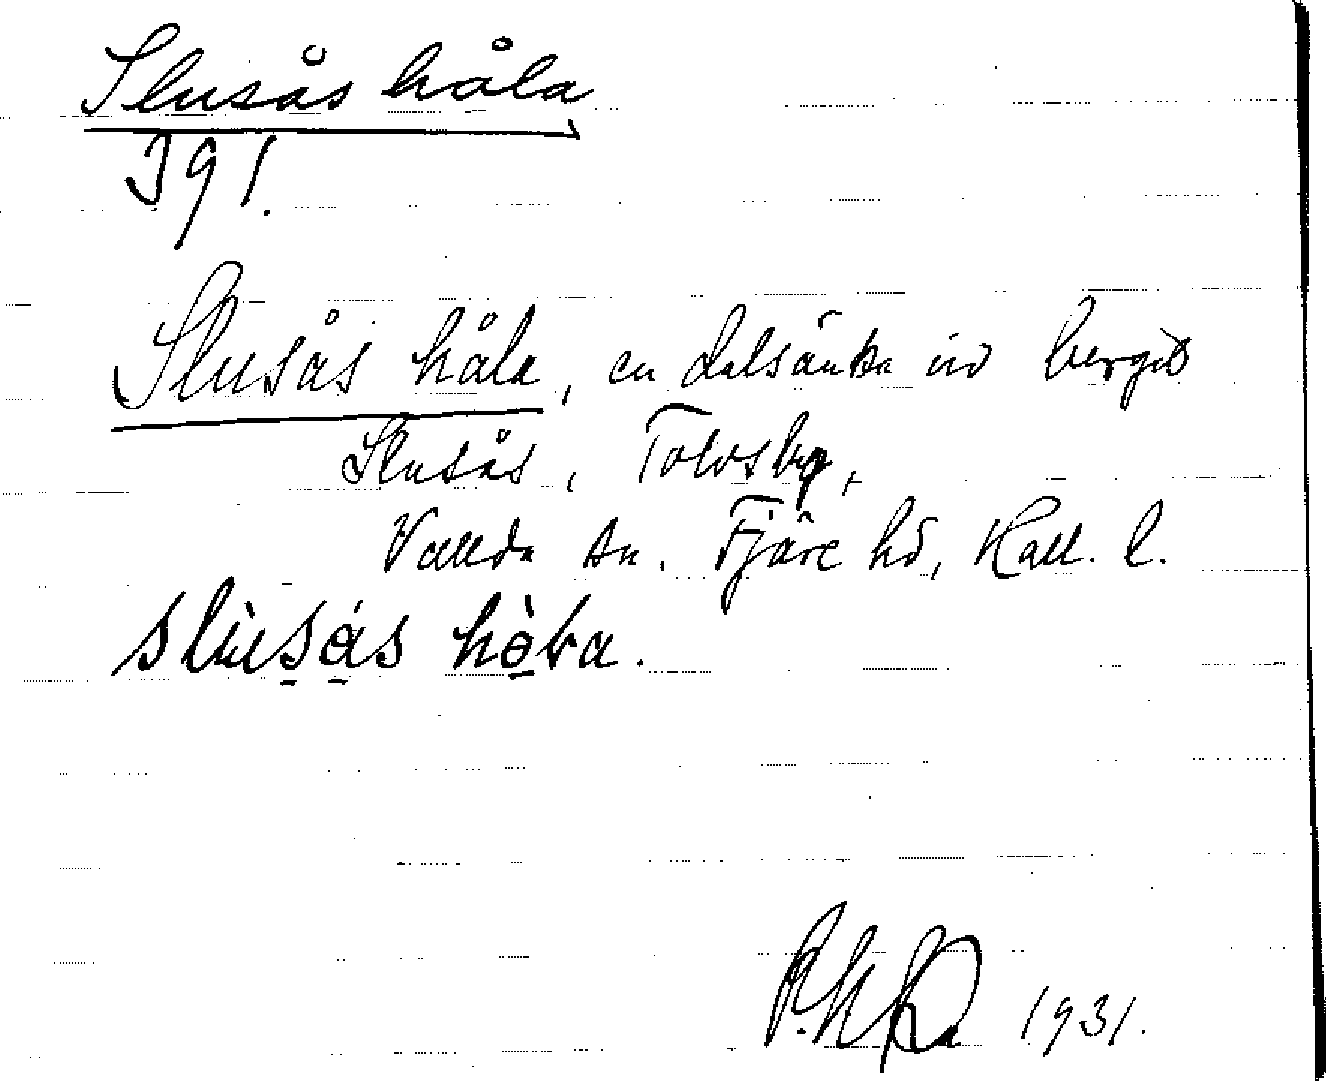 Slusås håla
391.
Slusås håla, en dalsänka vid berget
Slusås, Tolvsbg,
Vallda sn. Fjäre hd, Hall. l.
slùsås hòla.
1931.